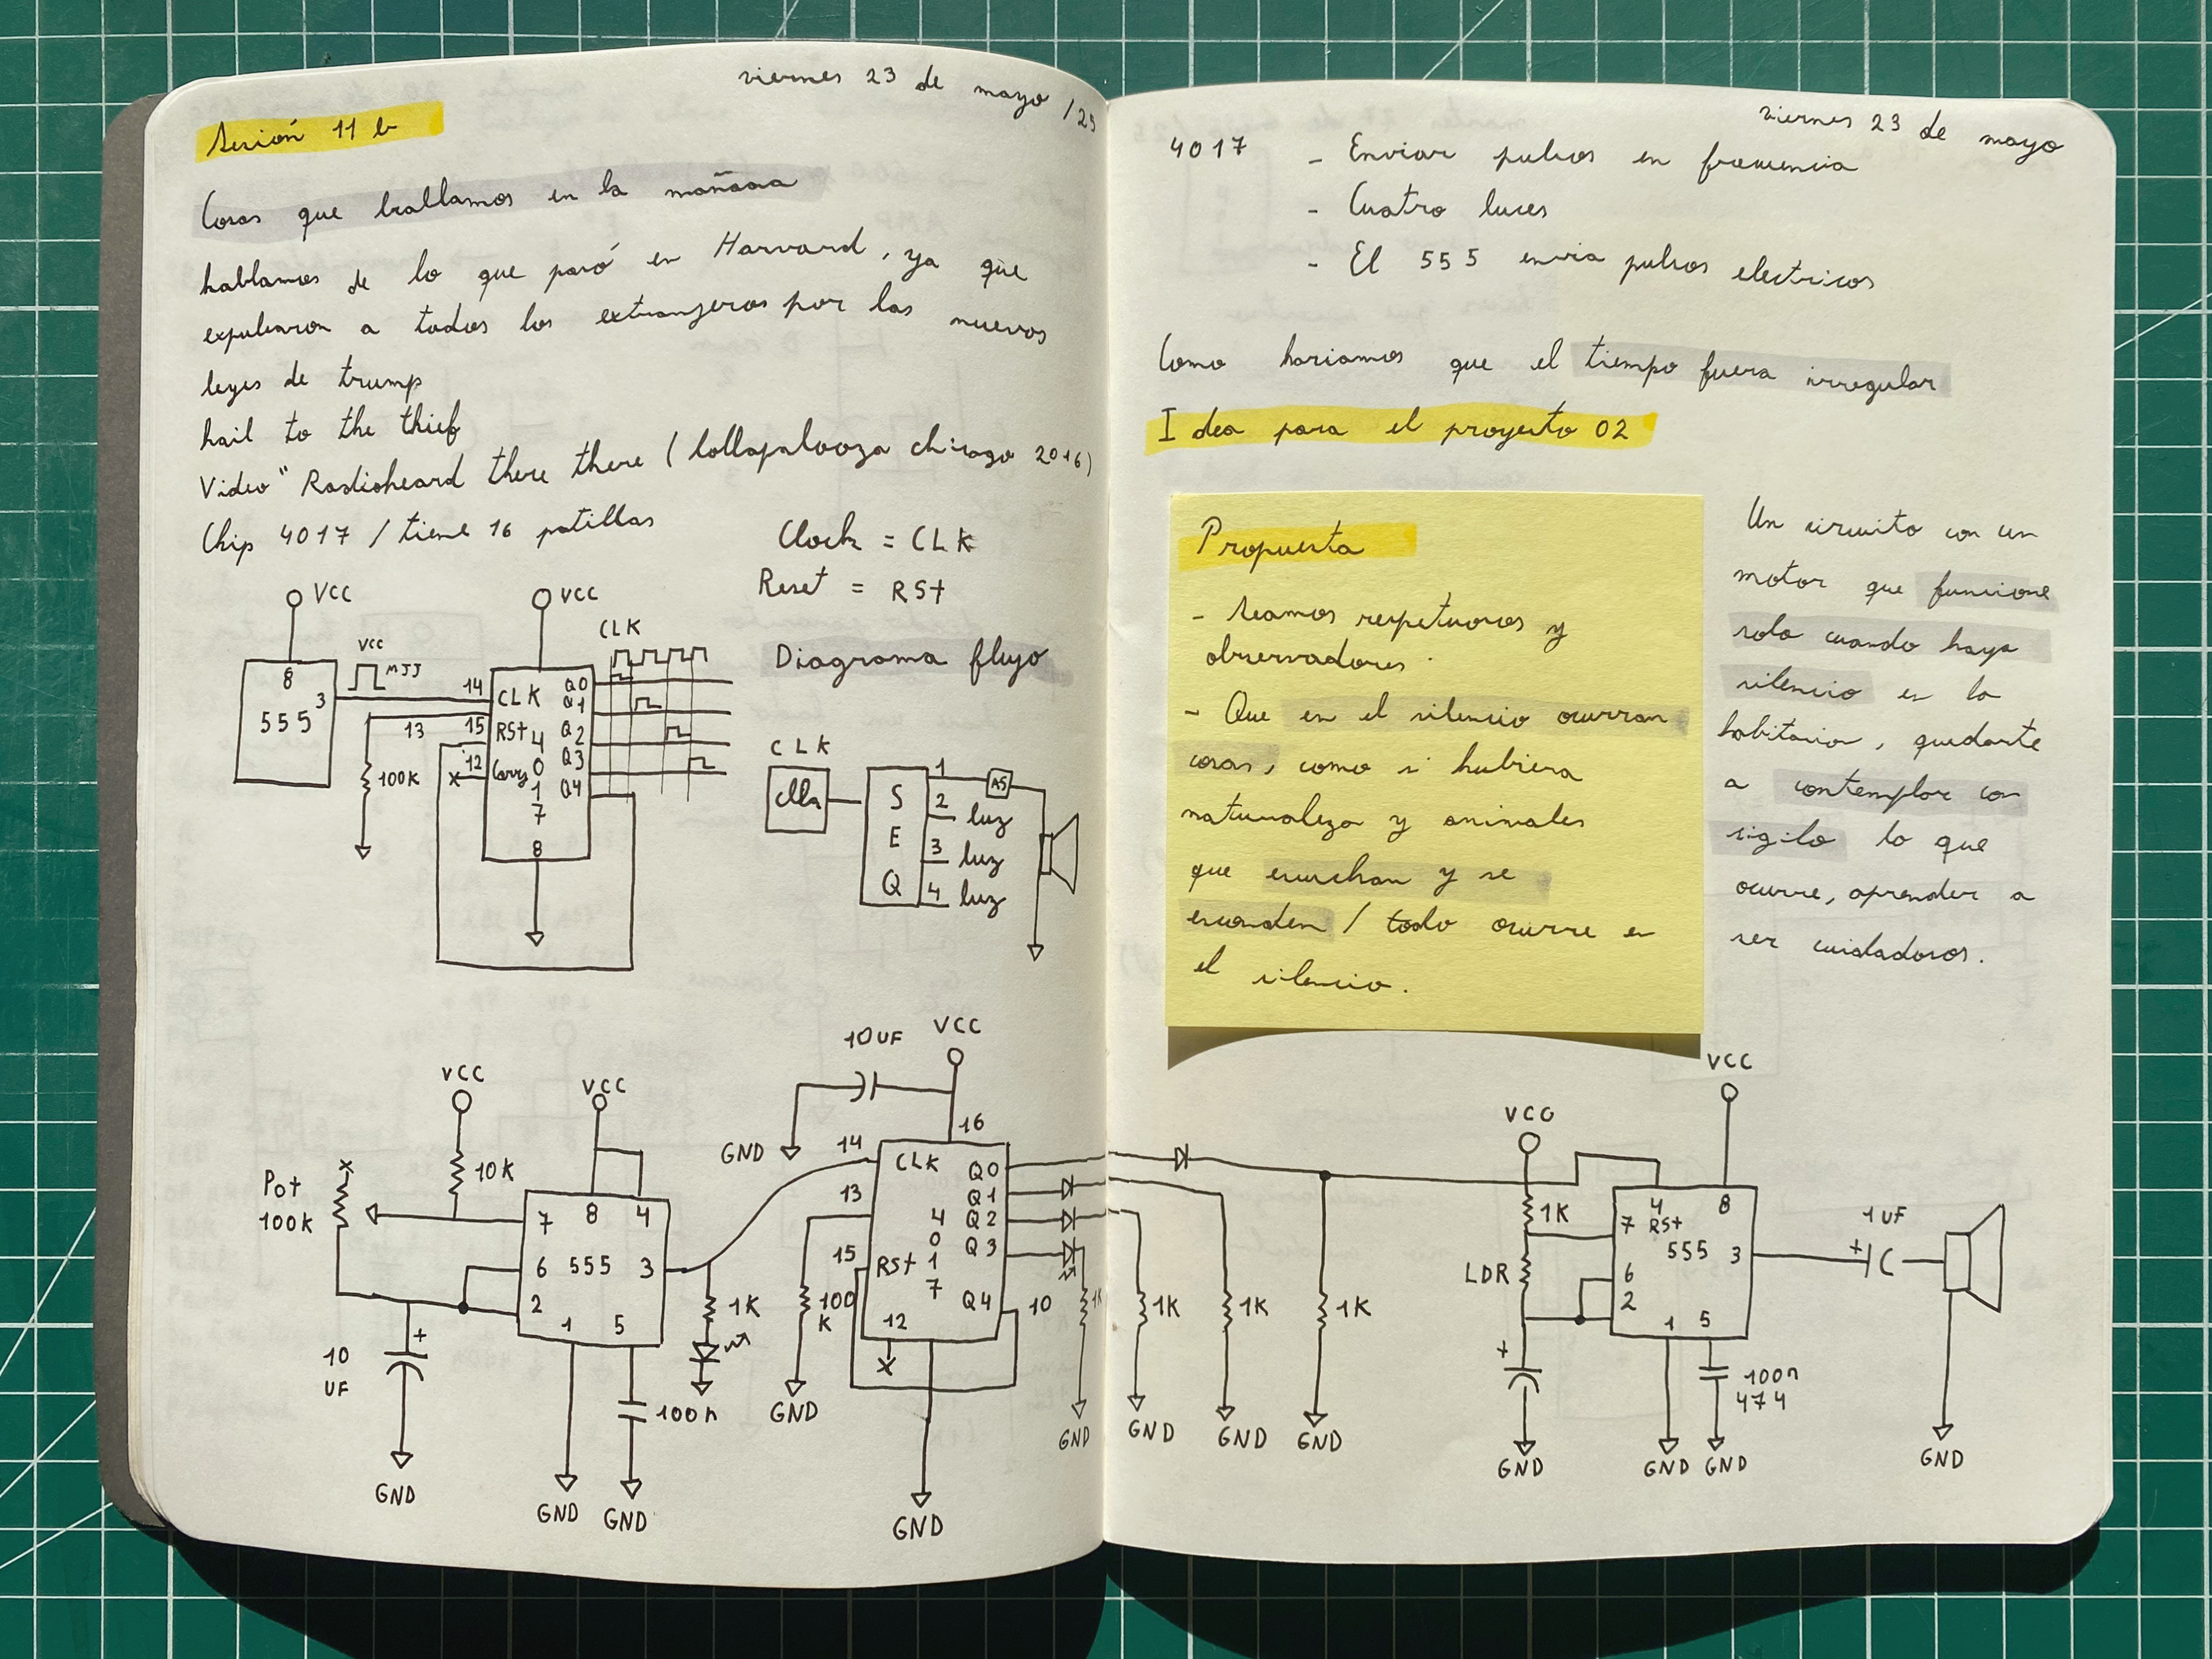 viernes 23 de mayo /25
Sesión 11 b
Cosas que hablamos en la mañana
hablamos de lo que pasó en Harvard, ya que
expulsaron a todos los extranjeros por las nuevas
leyes de trump
hail to the thief
Video " Radioheard there there ( lollapalooza chicago 2016)
Chip 4017 / tiene 16 patillas
Clock = CLK
Reset = RSt
VCC
VCC
CLK
VCC
Diagrama flujo
8
3
555
14
CLK
Q0
Q1
13
15
RSt
4
Q2
12
Carry
0
Q3
100K
1
Q4
7
8
CLK
SEQ
1
AS
2 luz
3 luz
4 luz
10UF
VCC
VCC
VCC
GND
14
16
Pot
100K
10K
CLK
Q0
Q1
13
7
8
4
4
Q2
0
Q3
15
RSt
1
7
6
555
3
2
1K
100
K
Q4
10
1K
1
5
12
X
10
UF
100n
GND
GND
GND
GND
GND
GND
viernes 23 de mayo
4017
- Enviar pulsos en frecuencia
- Cuatro luces
- El 555 envia pulsos electricos
Como hariamos que el tiempo fuera irregular
Idea para el proyecto 02
Propuesta
- seamos respetuosos y
observadores
- Que en el silencio ocurran
cosas, como si hubiera
naturaleza y animales
que escuchan y se
esconden / todo ocurre en
el silencio.
Un circuito con un
motor que funcione
solo cuando haya
silencio en la
habitacion, quedarte
a contemplar con
sigilo lo que
ocurre, aprender a
ser cuidadosos.
VCC
VCC
1K
4
8
7
RSt
555
3
1UF
LDR
6
2
1K
1K
1K
1
5
100n
474
GND
GND
GND
GND
GND
GND
GND